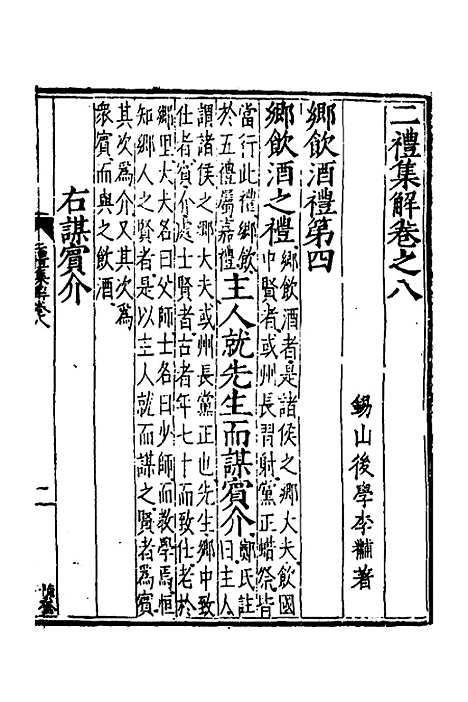 二禮集解卷之八
錫山後學李黼著
鄉飲酒禮第四
鄉飲酒之禮鄉飲酒者是諸侯之鄉大夫飲國
中賢者或州長習射黨正蜡祭皆
當行此禮鄉飲
於五禮屬嘉禮主人就先生而謀賓介鄭氏註
曰主人
謂諸侯之鄉大夫或州長黨正也先生鄉中致
仕者賓介處士賢者古者年七十而致仕老於
鄉里大夫名曰父師士名曰少師而教學焉恒
知鄉人之賢者是以主人就而謀之賢者為賓
其次為介又其次為
衆賓而與之飲酒
右謀賓介
二禮集解卷八
一